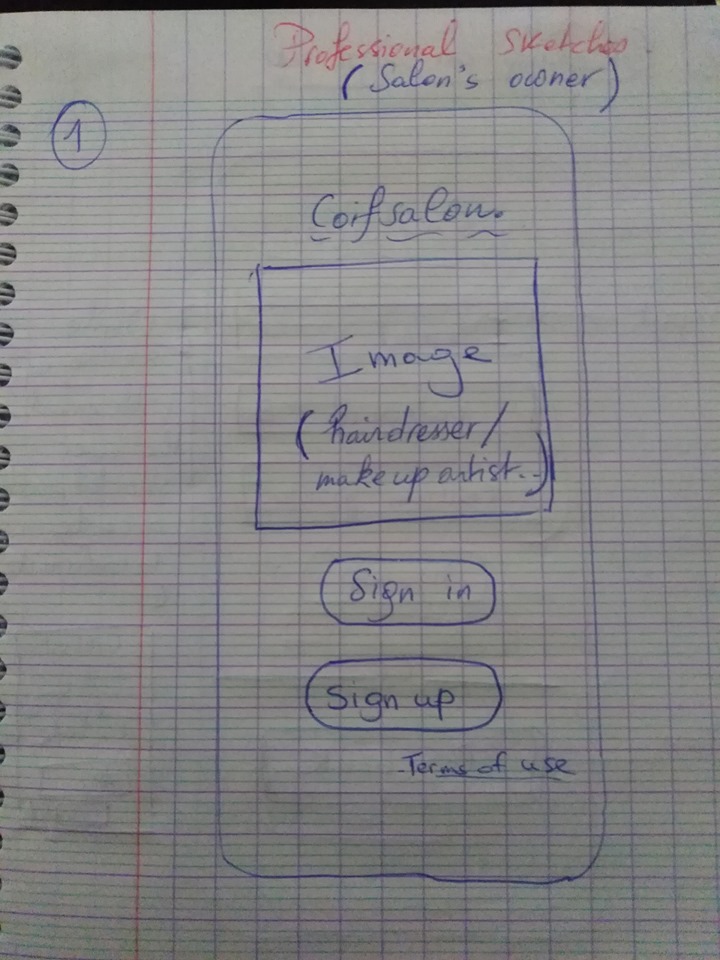 Professional Sketches
(Salon's owner)
1
Coifsalon.
Image
(hairdresser/
make up artist..)
Sign in
Sign up
Terms of use